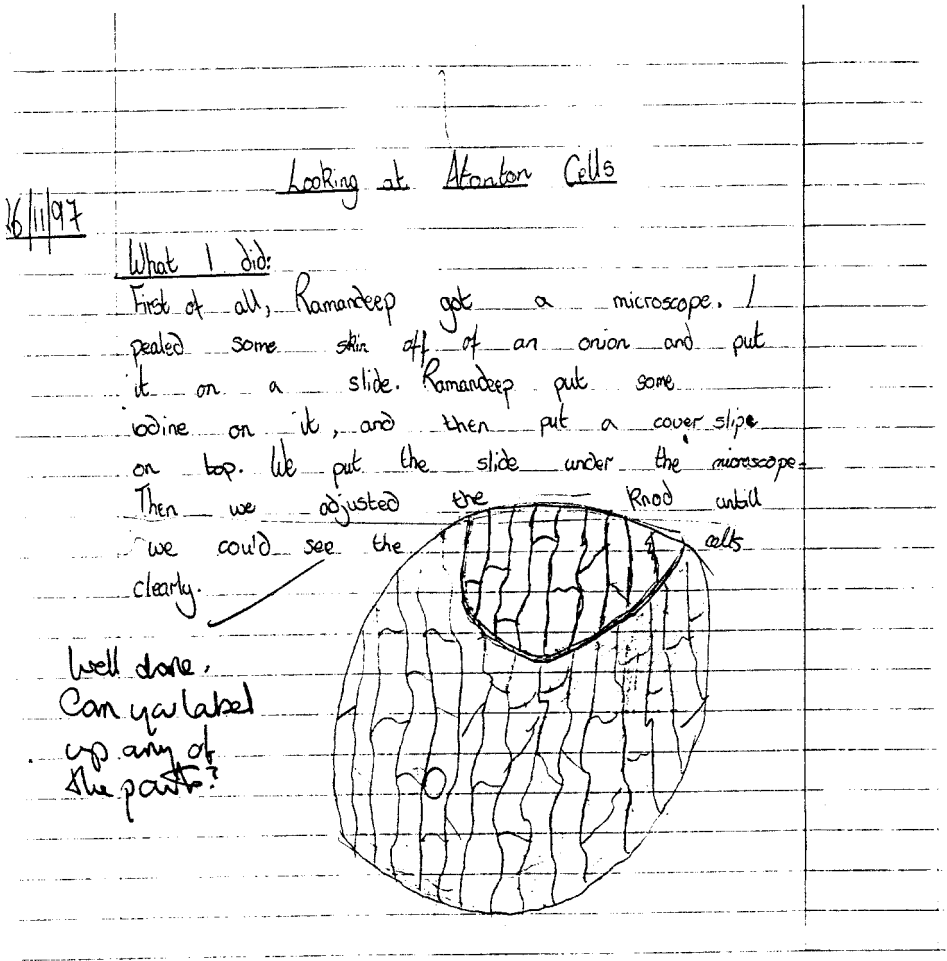 Looking at Atonton Cells
26/11/97
What I did:
First of all, Ramandeep got a microscope. I
pealed some skin off of an onion and put
it on a slide. Ramandeep put some
iodine on it, and then put a cover slipe
on top. We put the slide under the microscope.
Then we adjusted the knod untill
we could see the cells
clearly.
Well done.
Can you label
up any of
the parts?